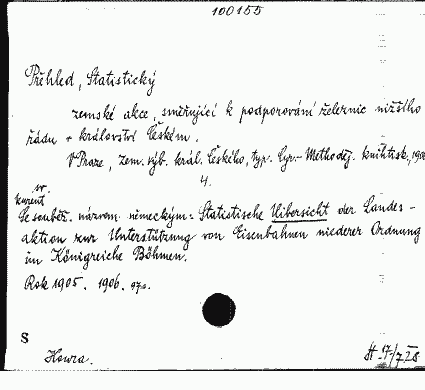 100155
Přehled, Statistický
zemské akce, směřující k podporování železnic nižšího
řádu v království Českém.
V Praze, zem. výb. král. Českého, typ. Cyr.-Methoděj. knihtisk.,
4.
sv.
Se souběž. názvem německým: Statistische Uibersicht der Landes-
aktion zur Unterstützung von Eisenbahnen niederer Ordnung
im Königreiche Böhmen.
Rok 1905. 1906.
S